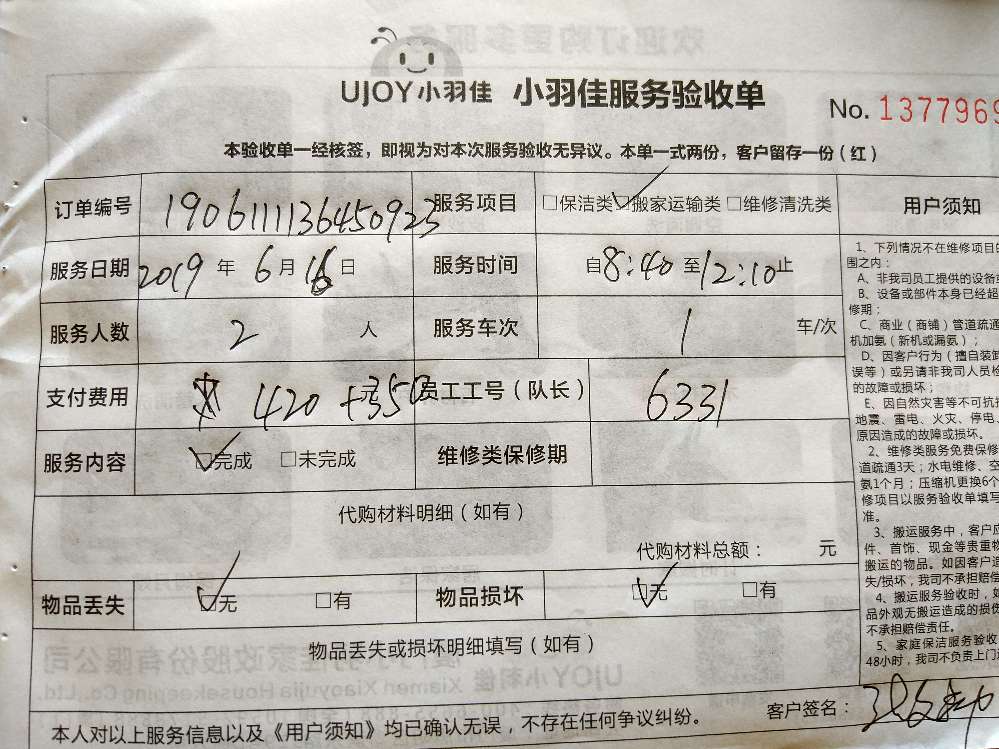 UJOY小羽佳 小羽佳服务验收单
No. 1377969
本验收单一经核签，即视为对本次服务验收无异议。本单一式两份，客户留存一份（红）
订单编号 1906111136450923 服务项目 □保洁类 ☑搬家运输类 □维修清洗类
服务日期 2019 年 6 月 16 日 服务时间 自 8:40 至 12:10 止
服务人数 2 人 服务车次 1 车/次
支付费用 420+350 员工工号（队长） 6331
服务内容 ☑完成 □未完成 维修类保修期
代购材料明细（如有）
代购材料总额： 元
物品丢失 ☑无 □有 物品损坏 ☑无 □有
物品丢失或损坏明细填写（如有）
本人对以上服务信息以及《用户须知》均已确认无误，不存在任何争议纠纷。
客户签名：
用户须知
1、下列情况不在维修项目
围之内：
A、非我司员工提供的设备
B、设备或部件本身已经超
修期；
C、商业（商铺）管道疏通
机加氨（新机或漏氨）；
D、因客户行为（擅自装卸
误等）或另请非我司人员检
的故障或损坏；
E、因自然灾害等不可抗
地震、雷电、火灾、停电、
原因造成的故障或损坏。
2、维修类服务免费保修
道疏通3天；水电维修、空
氨1个月；压缩机更换6个
修项目以服务验收单填写
准。
3、搬运服务中，客户应
件、首饰、现金等贵重物
搬运的物品。如因客户
失/损坏，我司不承担赔偿
4、搬运服务验收时，如
品外观无搬运造成的损
不承担赔偿责任。
5、家庭保洁服务验收
48小时，我司不负责上门